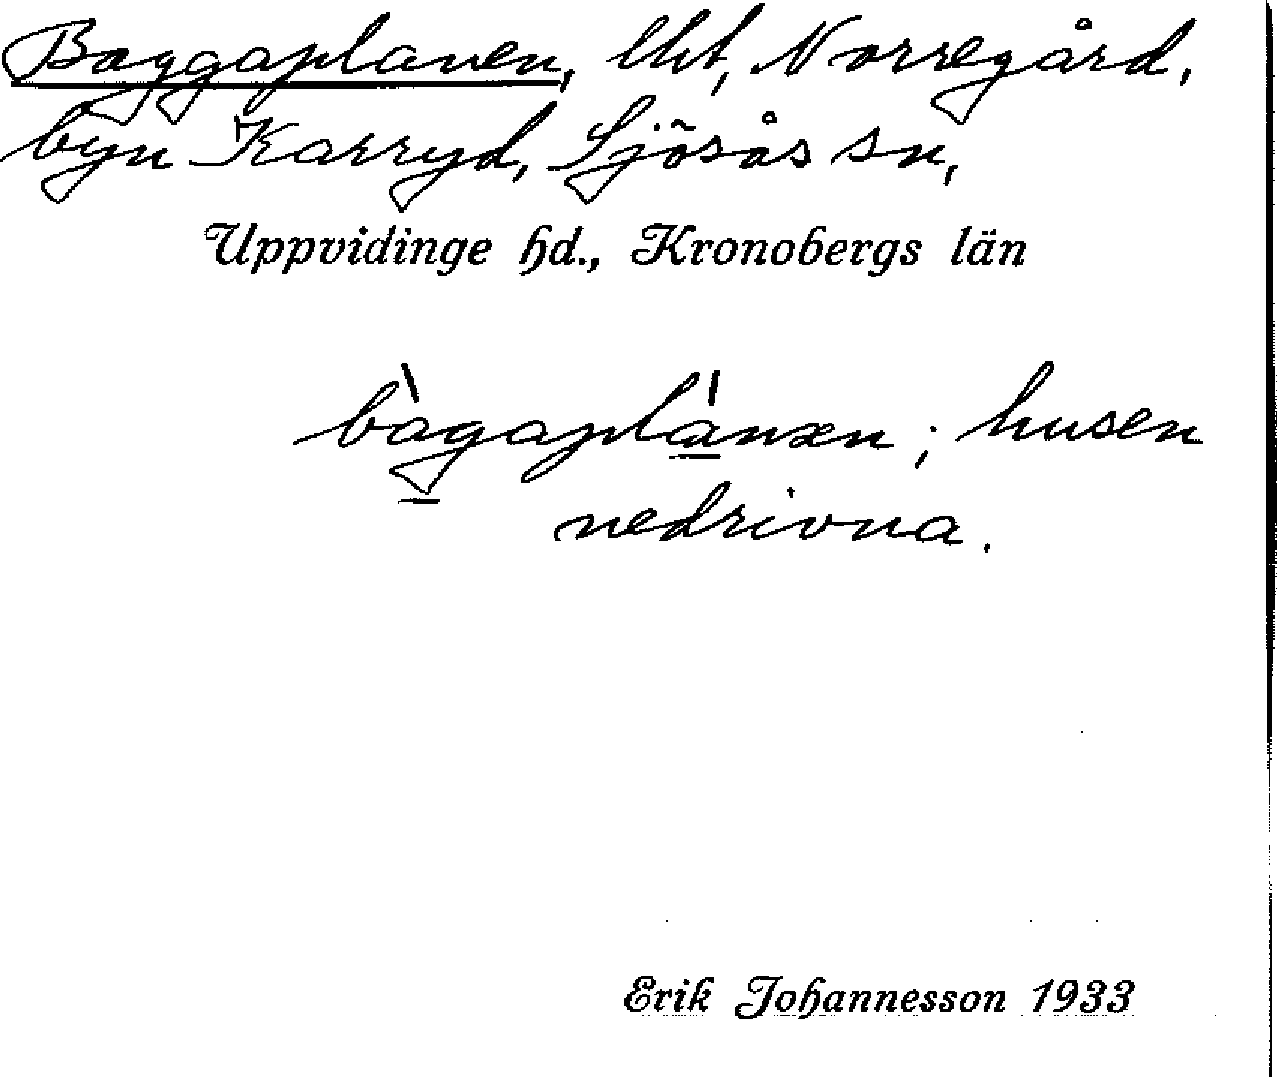 Baggaplanen, lht, Norregård,
byn Karryd, Sjösås sn,
Uppvidinge hd., Kronobergs län
bàgaplánən; husen
nedrivna.
Erik Johannesson 1933